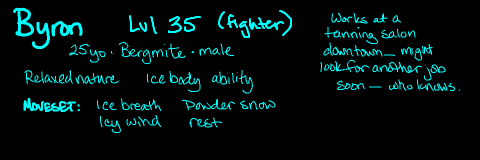 Byron Lvl 35 (fighter)
25yo · Bergmite · male
Relaxed nature Ice body ability
MOVESET: Ice breath Powder snow
Icy wind rest
Works at a
tanning salon
downtown— might
look for another job
soon— who knows.